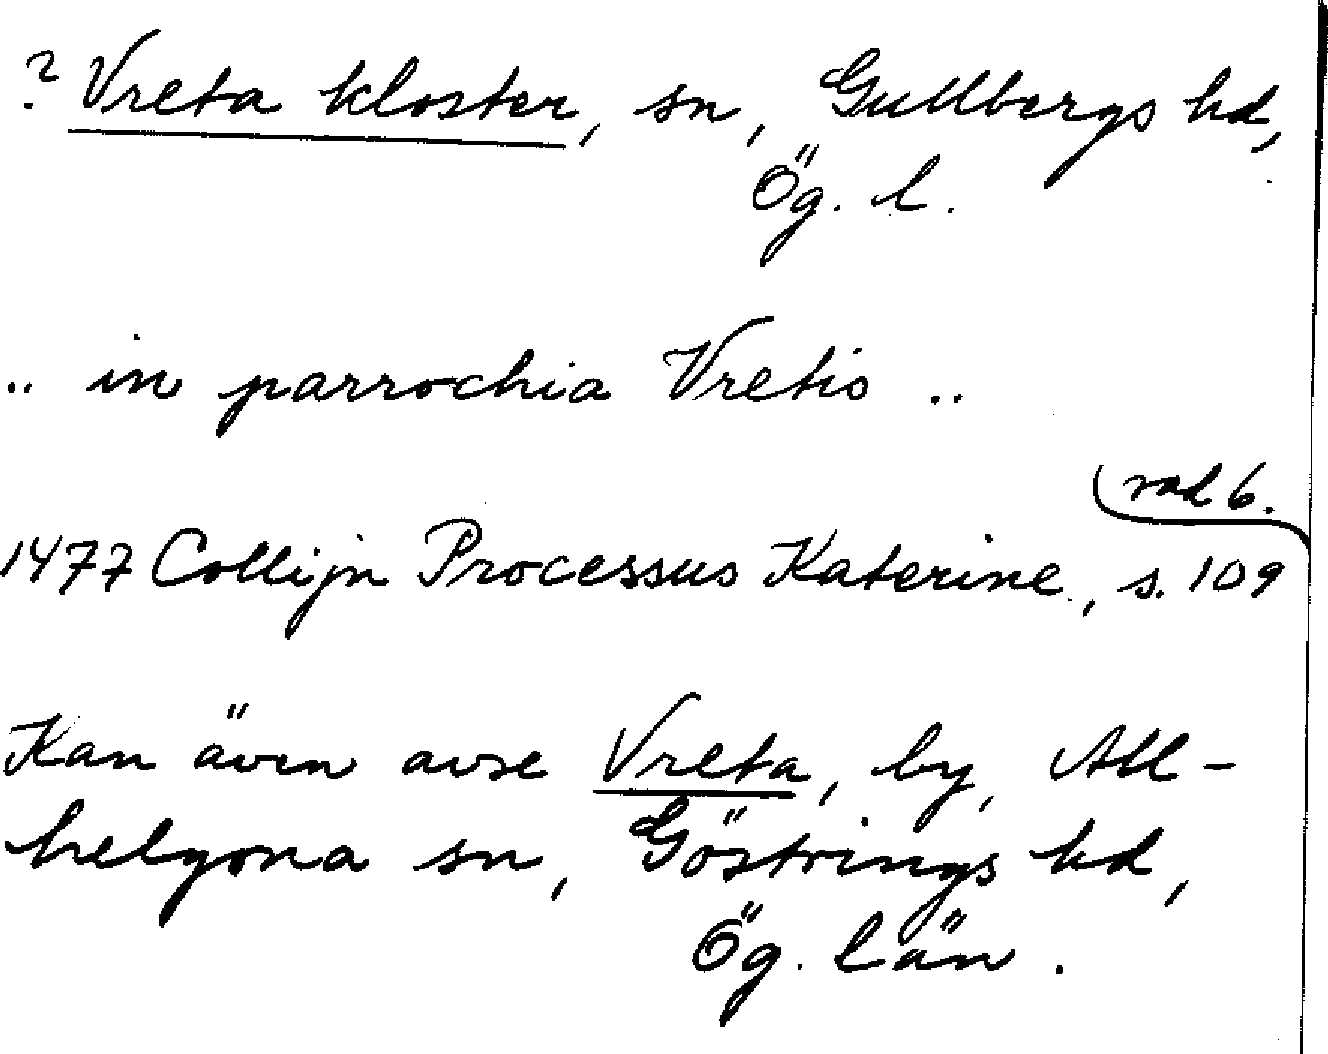 ? Vreta kloster, sn, Gullbergs hd,
Ög. l.
.. in parrochia Vretis ..
rad 6.
1477 Collijn Processus Katerine, s. 109
Kan även avse Vreta, by, All-
helgona sn, Göstrings hd,
Ög. län.